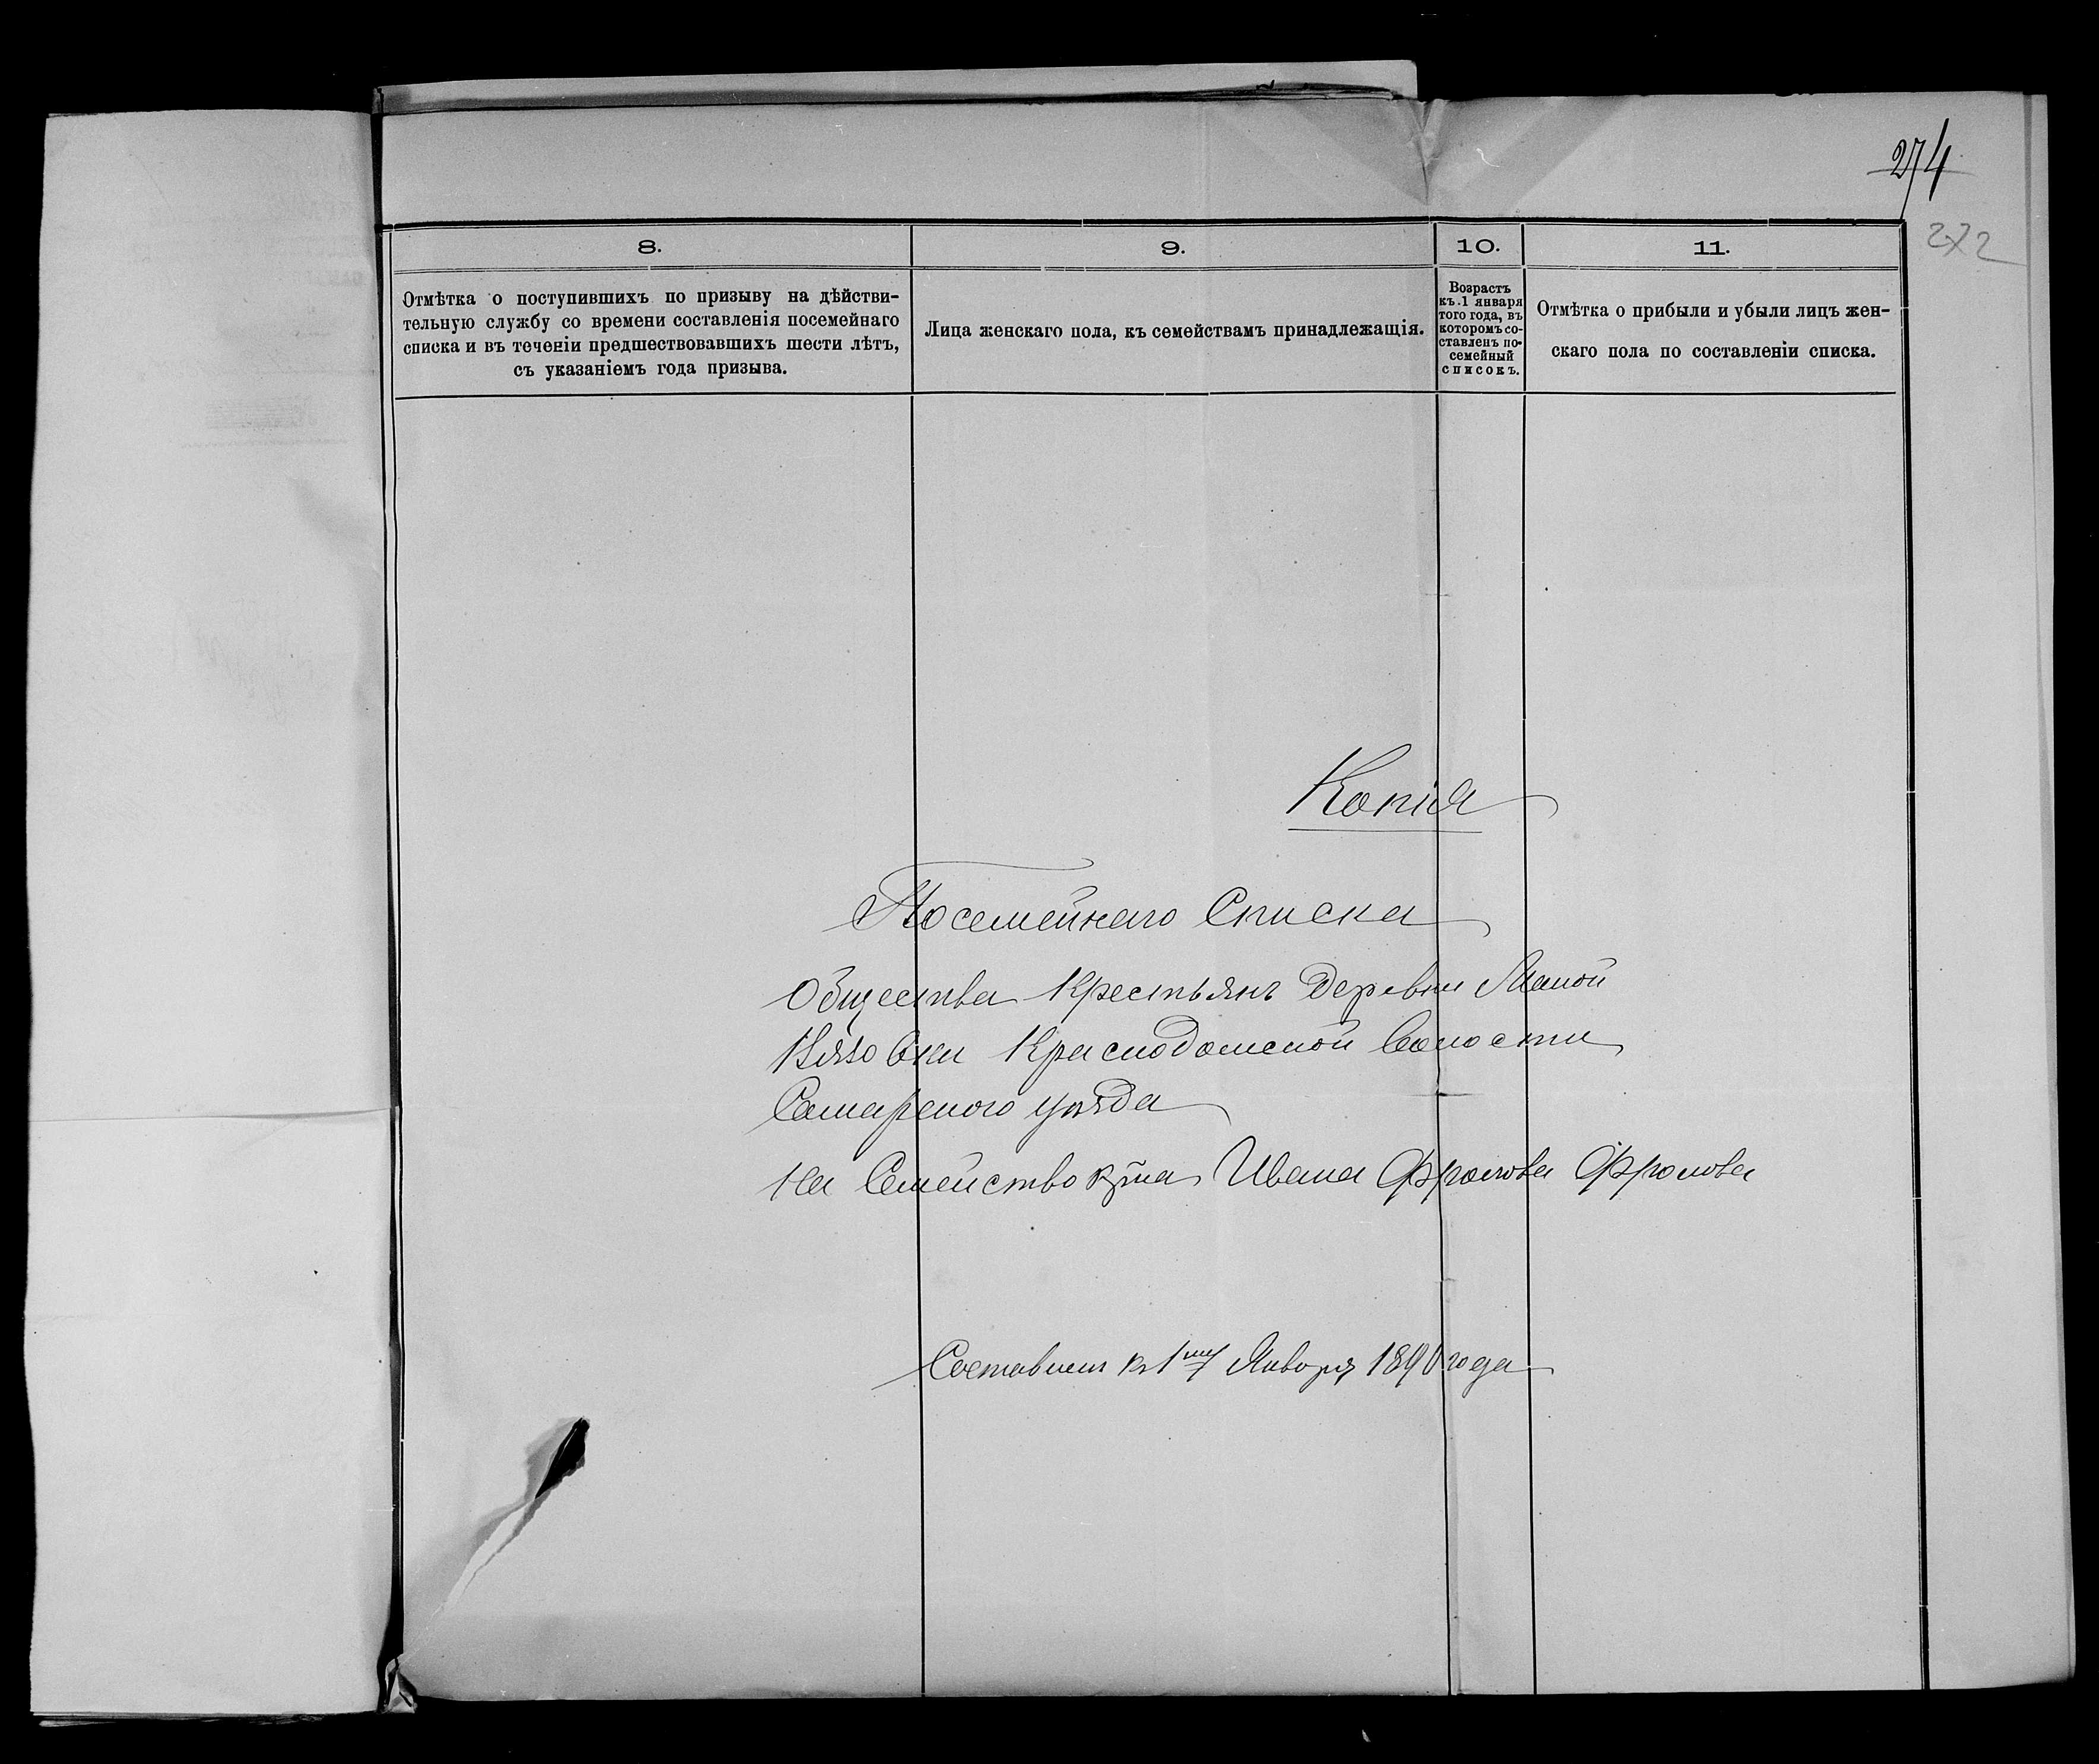 274
272
8.
9.
10.
11.
Отмѣтка о поступившихъ по призыву на дѣйстви-
тельную службу со времени составленія посемейнаго
списка и въ теченіи предшествовавшихъ шести лѣтъ,
съ указаніемъ года призыва.
Лица женскаго пола, къ семействамъ принадлежащія.
Возрастъ
къ 1 января
того года, въ
которомъ со-
ставленъ по-
семейный
списокъ.
Отмѣтка о прибыли и убыли лицъ жен-
скаго пола по составленіи списка.
Копія
Посемейнаго Списка
Общества Крестьянъ Деревни Малой
Вязовки Красnодомской Волости
Самарскаго уѣзда
На Семейство кр̃на Ивана Фролова Фролова
Составленъ къ 1му Января 1890 года